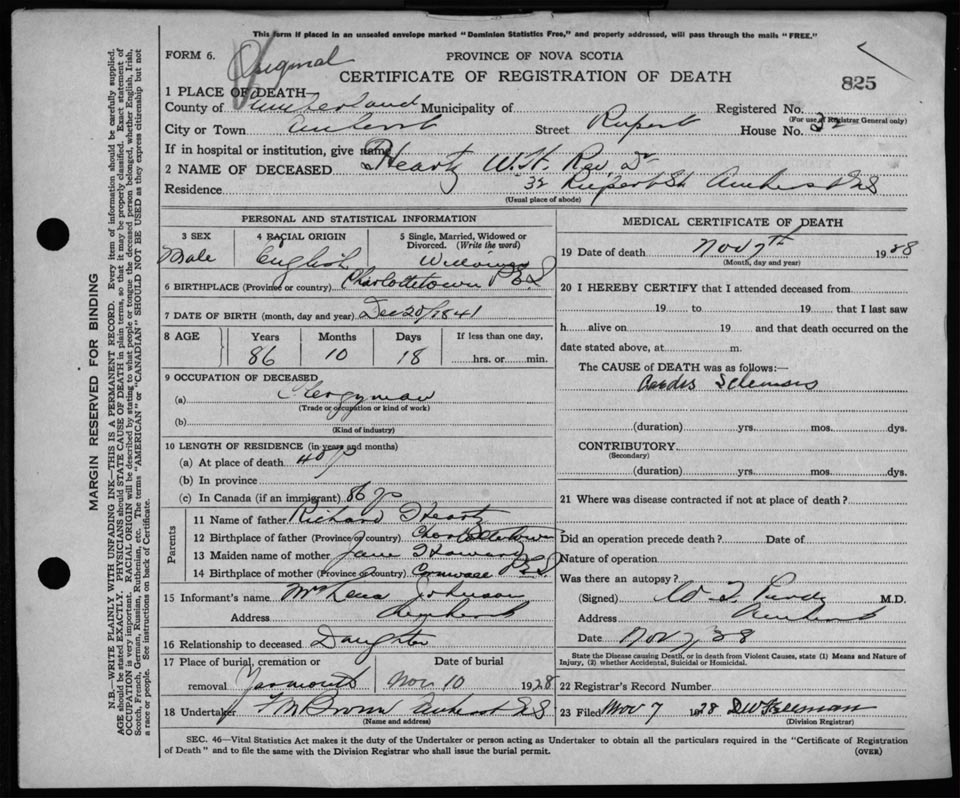 This form if placed in an unsealed envelope marked "Dominion Statistics Free," and properly addressed, will pass through the mails "FREE."
FORM 6. Original PROVINCE OF NOVA SCOTIA
CERTIFICATE OF REGISTRATION OF DEATH 825
1 PLACE OF DEATH
County of Cumberland Municipality of Registered No.
(For use of Registrar General only)
City or Town Amherst Street Rupert House No. 32
If in hospital or institution, give name
2 NAME OF DECEASED Heartz W.H. Rev. Dr
Residence 32 Rupert St Amherst NS
(Usual place of abode)
PERSONAL AND STATISTICAL INFORMATION
3 SEX 4 RACIAL ORIGIN 5 Single, Married, Widowed or
Divorced. (Write the word)
Male English Widower
6 BIRTHPLACE (Province or country) Charlottetown P.E.I.
7 DATE OF BIRTH (month, day and year) Dec 20/1841
8 AGE Years Months Days If less than one day,
86 10 18 hrs. or min.
9 OCCUPATION OF DECEASED
(a) Clergyman
(Trade or occupation or kind of work)
(b)
(Kind of industry)
10 LENGTH OF RESIDENCE (in years and months)
(a) At place of death 40 yr
(b) In province
(c) In Canada (if an immigrant) 86 yr
Parents
11 Name of father Richard Heartz
12 Birthplace of father (Province or country) Charlottetown
13 Maiden name of mother Jane Howard
14 Birthplace of mother (Province or country) Cornwall P.E.I.
15 Informant's name Mrs Lena Johnson
Address Amherst
16 Relationship to deceased Daughter
17 Place of burial, cremation or Date of burial
removal Yarmouth Nov 10 1928
18 Undertaker F M Brown Amherst NS
(Name and address)
MEDICAL CERTIFICATE OF DEATH
19 Date of death Nov 7th 1928
(Month, day and year)
20 I HEREBY CERTIFY that I attended deceased from
19 to 19 that I last saw
h alive on 19 and that death occurred on the
date stated above, at m.
The CAUSE of DEATH was as follows:—
(duration) yrs. mos. dys.
CONTRIBUTORY
(Secondary)
(duration) yrs. mos. dys.
21 Where was disease contracted if not at place of death?
Did an operation precede death? Date of
Nature of operation
Was there an autopsy?
(Signed) W. T. Purdy M.D.
Address Amherst
Date Nov 7, 28
State the Disease Causing Death, or in death from Violent Causes, state (1) Means and Nature of
Injury, (2) whether Accidental, Suicidal or Homicidal.
22 Registrar's Record Number
23 Filed Nov 7 1928 DW Freeman
(Division Registrar)
SEC. 46—Vital Statistics Act makes it the duty of the Undertaker or person acting as Undertaker to obtain all the particulars required in the "Certificate of Registration
of Death" and to file the same with the Division Registrar who shall issue the burial permit. (OVER)
MARGIN RESERVED FOR BINDING
N.B.—WRITE PLAINLY WITH UNFADING INK—THIS IS A PERMANENT RECORD. Every item of information should be carefully supplied.
AGE should be stated EXACTLY. PHYSICIANS should STATE CAUSE OF DEATH in plain terms, so that it may be properly classified. Exact statement of
OCCUPATION is very important. RACIAL ORIGIN will be described by stating to what people or tongue the deceased person belonged, whether English, Irish,
Scotch, French, German, Russian, Ruthenian, etc. The terms "AMERICAN" or "CANADIAN" SHOULD NOT BE USED as they express citizenship but not
a race or people. See instructions on back of Certificate.